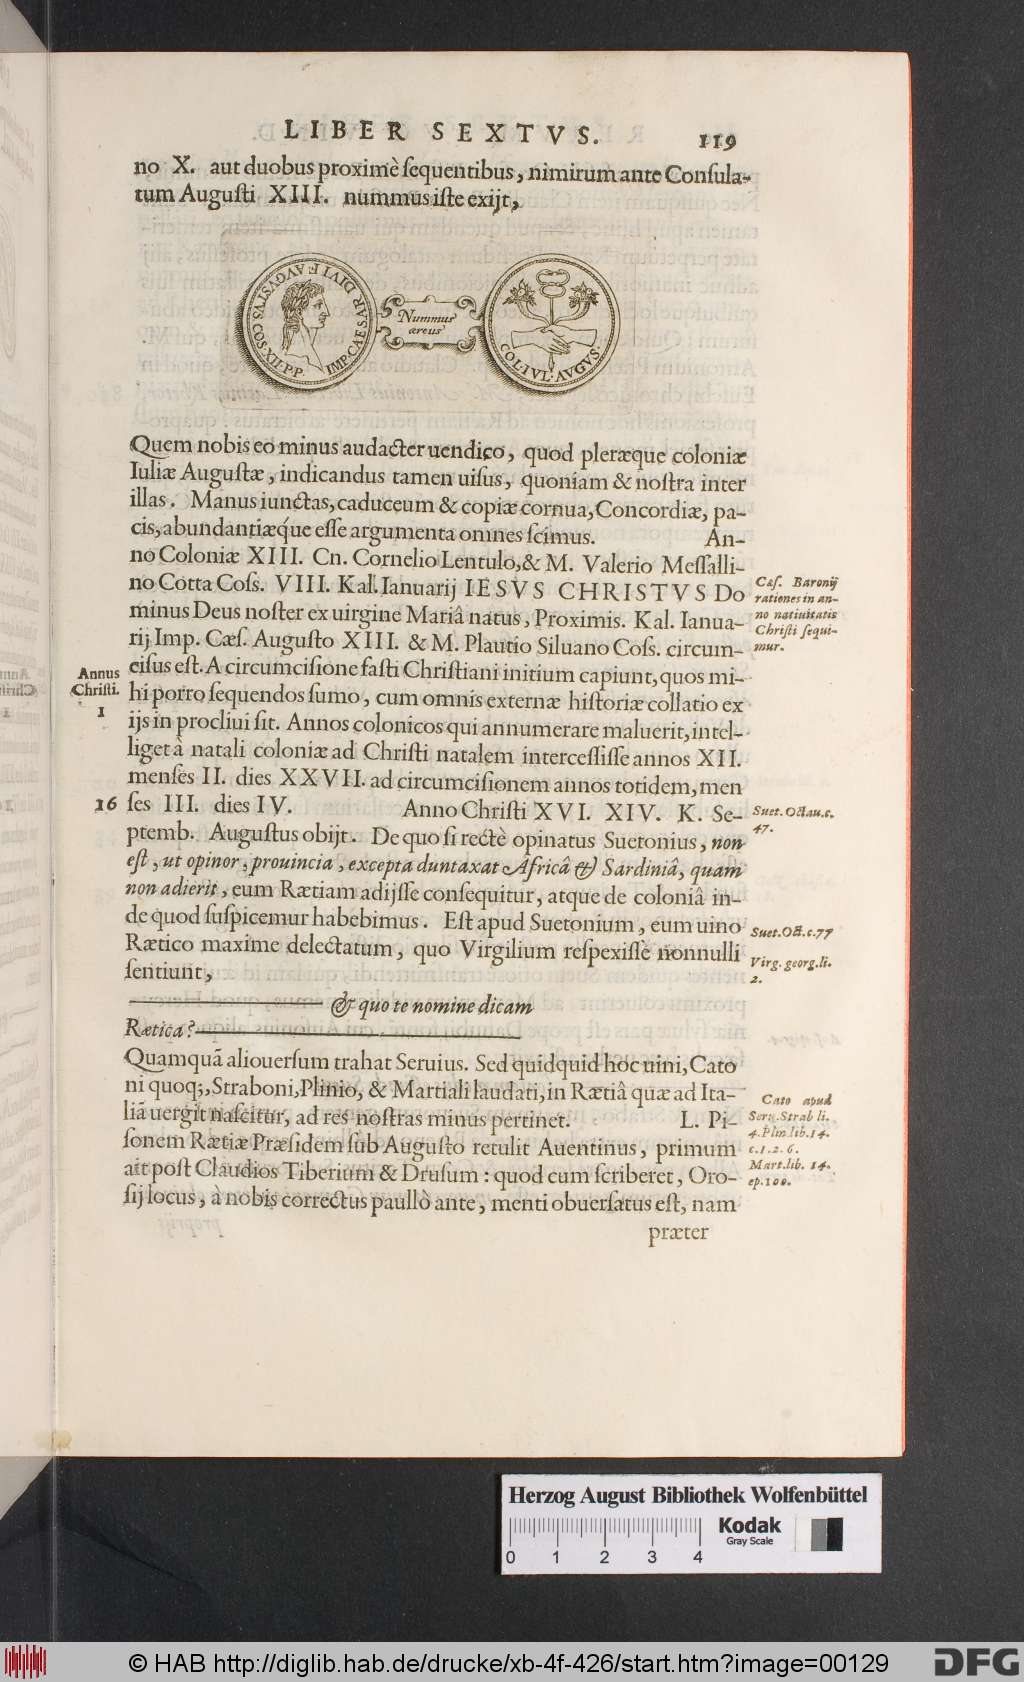 LIBER SEXTVS. 119
no X. aut duobus proximè ſequentibus, nimirum ante Conſula-
tum Auguſti XIII. nummus iſte exijt,
IMP. CAESAR DIVI F. AVGVSTVS COS. XII. P.P.
Nummus
æreus
COL. IVL. AVGVS.
Quem nobis eo minus audacter uendico, quod pleræque coloniæ
Iuliæ Auguſtæ, indicandus tamen uiſus, quoniam & noſtra inter
illas. Manus iunctas, caduceum & copiæ cornua, Concordiæ, pa-
cis, abundantiæq́ue eſſe argumenta omnes ſcimus. An-
no Coloniæ XIII. Cn. Cornelio Lentulo, & M. Valerio Meſſalli-
no Cotta Coſs. VIII. Kal. Ianuarij IESVS CHRISTVS Do
minus Deus noſter ex uirgine Mariâ natus, Proximis. Kal. Ianua-
rij Imp. Cæſ. Auguſto XIII. & M. Plautio Siluano Coſs. circum-
ciſus eſt. A circumciſione faſti Chriſtiani initium capiunt, quos mi-
hi porro ſequendos ſumo, cum omnis externæ hiſtoriæ collatio ex
ijs in procliui ſit. Annos colonicos qui annumerare maluerit, intel-
liget à natali coloniæ ad Chriſti natalem interceſſiſſe annos XII.
menſes II. dies XXVII. ad circumciſionem annos totidem, men
ſes III. dies IV. Anno Chriſti XVI. XIV. K. Se-
ptemb. Auguſtus obijt. De quo ſi rectè opinatus Suetonius, non
eſt, ut opinor, prouincia, excepta duntaxat Africâ & Sardiniâ, quam
non adierit, eum Rætiam adijſſe conſequitur, atque de coloniâ in-
de quod ſuſpicemur habebimus. Eſt apud Suetonium, eum uino
Rætico maxime delectatum, quo Virgilium reſpexiſſe nonnulli
ſentiunt,
& quo te nomine dicam
Rætica?
Quamquā aliouerſum trahat Seruius. Sed quidquid hoc uini, Cato
ni quoq;, Straboni, Plinio, & Martiali laudati, in Rætiâ quæ ad Ita-
liā uergit naſcitur, ad res noſtras minus pertinet. L. Pi-
ſonem Rætiæ Præſidem ſub Auguſto retulit Auentinus, primum
ait poſt Claudios Tiberium & Druſum: quod cum ſcriberet, Oro-
ſij locus, à nobis correctus paullò ante, menti obuerſatus eſt, nam
præter
Annus
Chriſti.
1
16
Cæſ. Baronij
rationes in an-
no natiuitatis
Chriſti ſequi-
mur.
Suet. Octau. c.
47.
Suet. Oct. c. 77
Virg. georg. li.
2.
Cato apud
Seru. Strab li.
4. Plin. lib. 14.
c. 1. 2. 6.
Mart. lib. 14.
ep. 100.
Herzog August Bibliothek Wolfenbüttel
0 1 2 3 4
Kodak
Gray Scale
© HAB http://diglib.hab.de/drucke/xb-4f-426/start.htm?image=00129
DFG